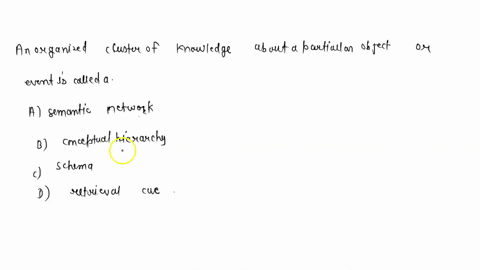 An organized cluster of knowledge about a partialan object or
event is called a.
A) semantic network
B) conceptual hierarchy
C) schema
D) retrieval cue .